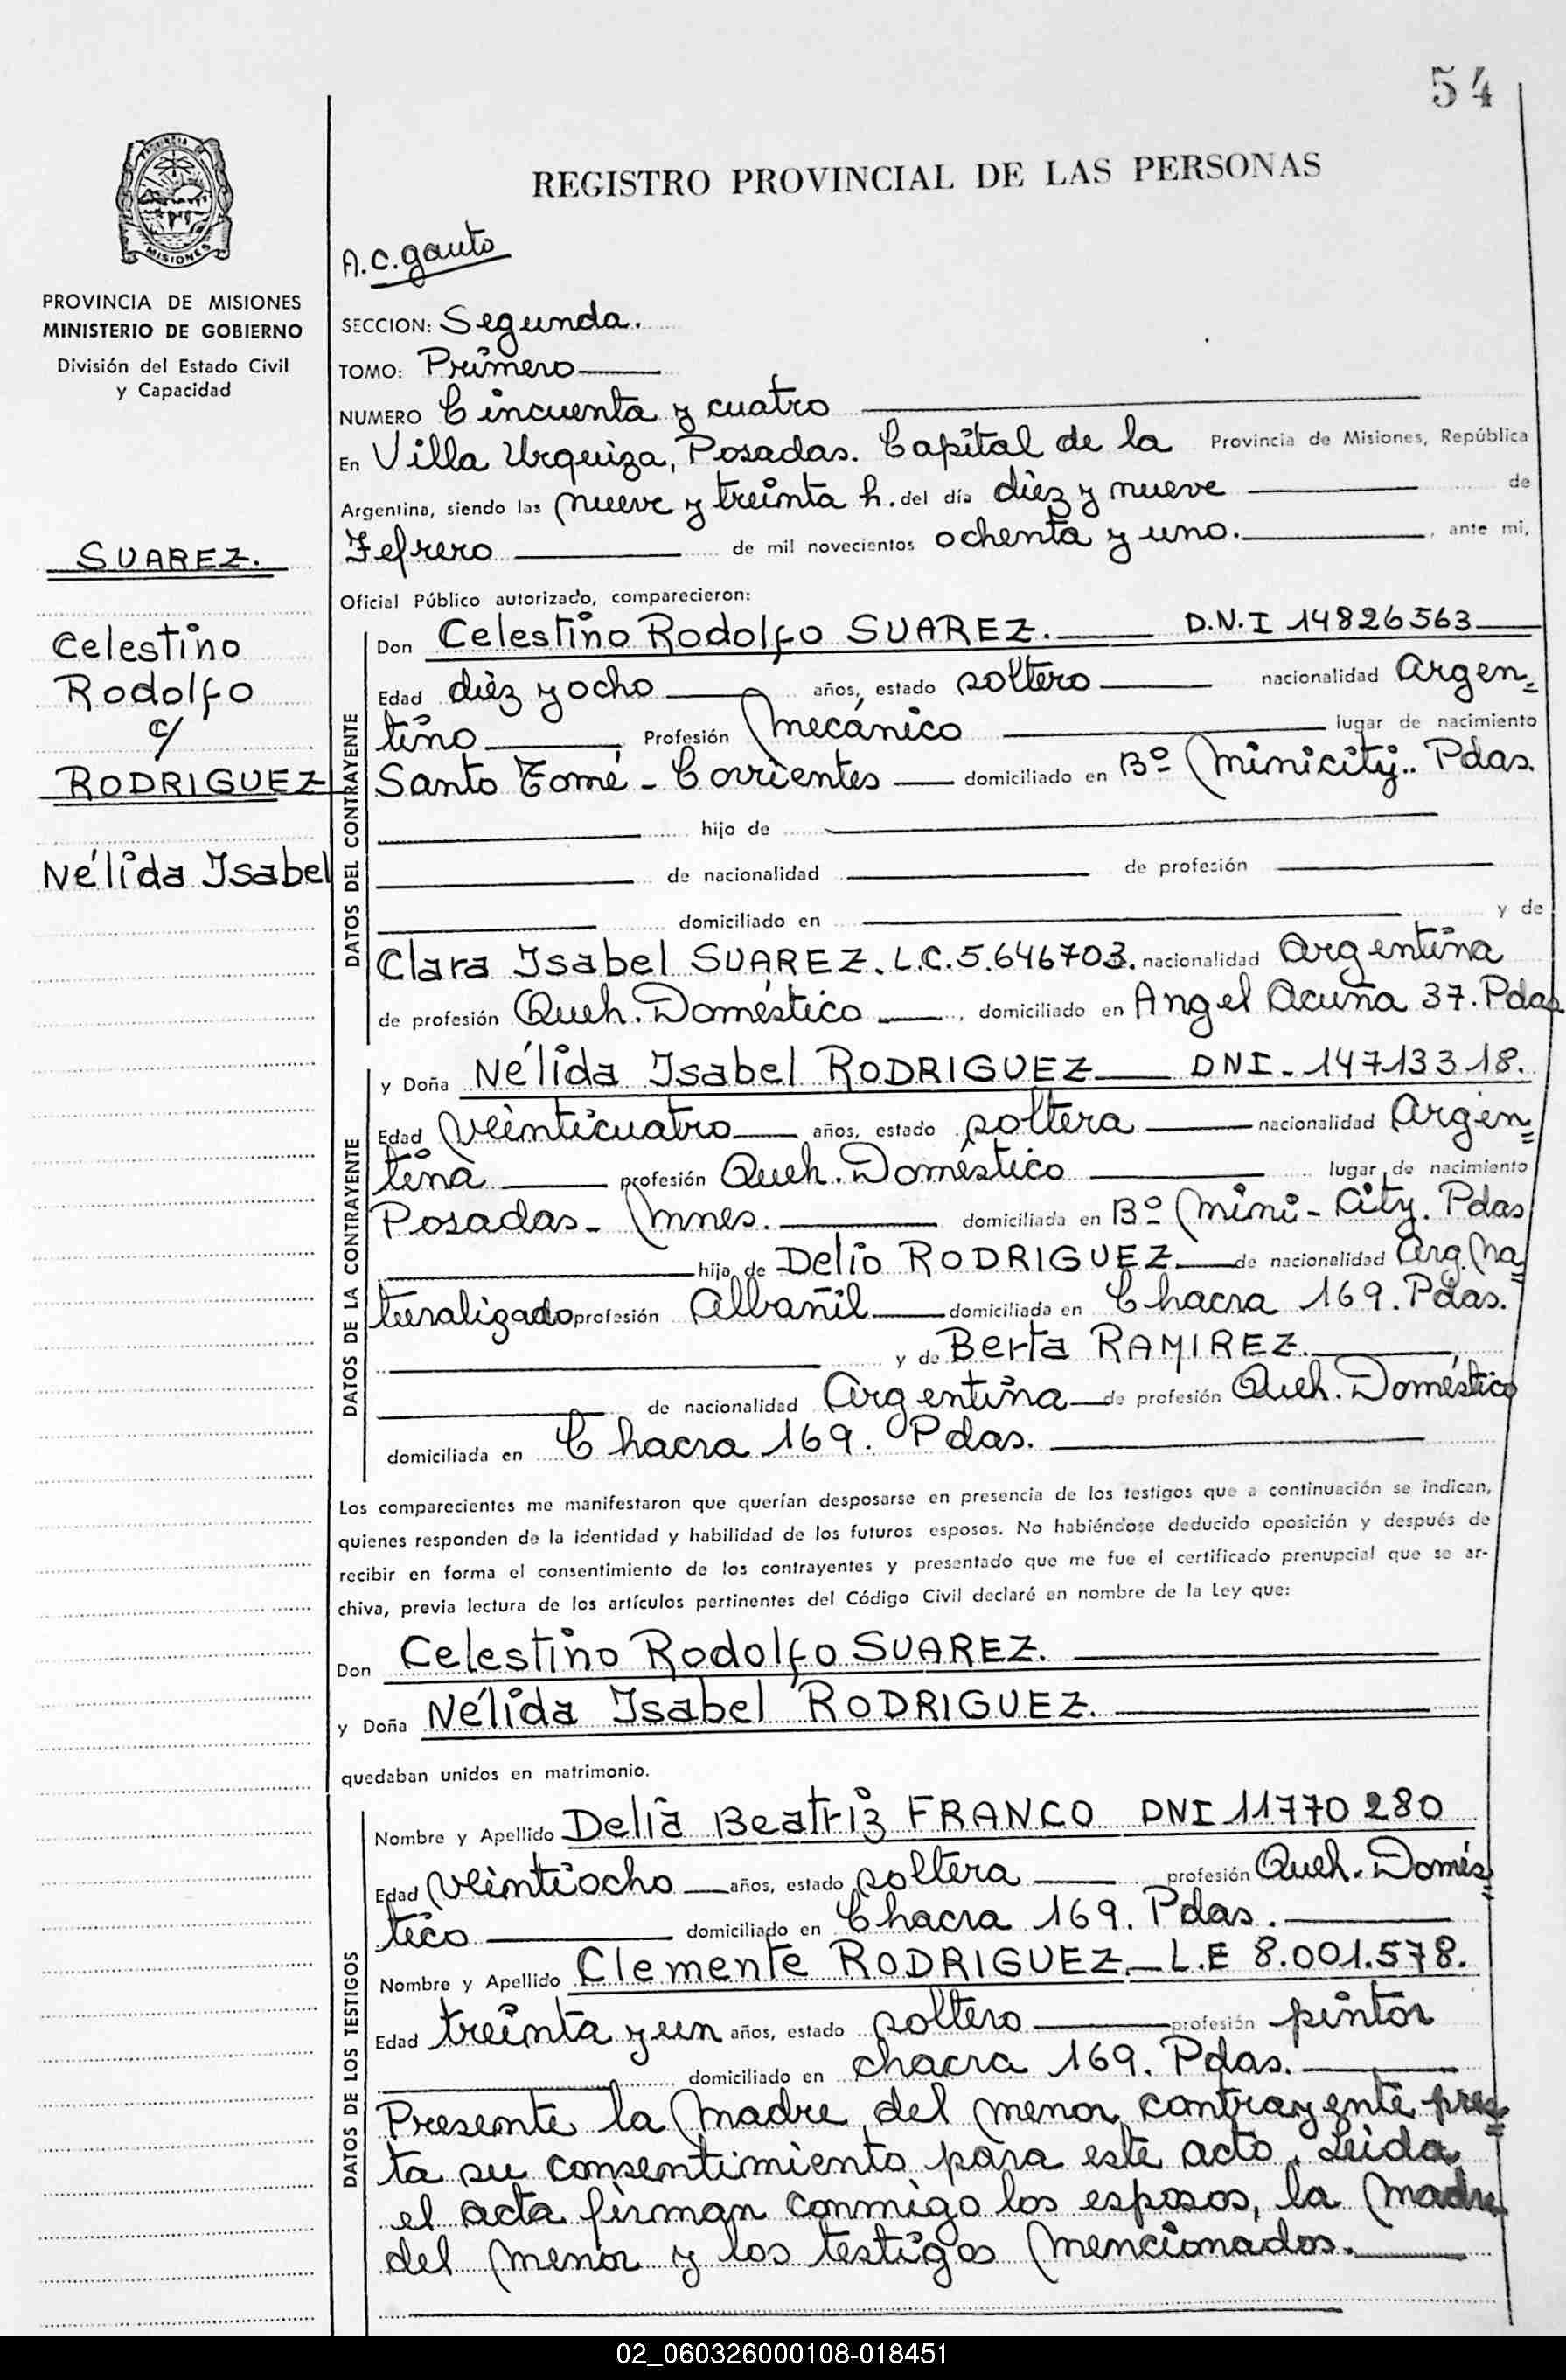 54
REGISTRO PROVINCIAL DE LAS PERSONAS
MISIONES
PROVINCIA DE MISIONES
MINISTERIO DE GOBIERNO
División del Estado Civil
y Capacidad
SUAREZ.
Celestino
Rodolfo
c/
RODRIGUEZ
Nélida Isabel
A.C. gauto
SECCION: Segunda.
TOMO: Primero
NUMERO Cincuenta y cuatro
En Villa Urquiza, Posadas. Capital de la Provincia de Misiones, República
Argentina, siendo las nueve y treinta h. del día diez y nueve de
Febrero de mil novecientos ochenta y uno. , ante mi,
Oficial Público autorizado, comparecieron:
DATOS DEL CONTRAYENTE
Don Celestino Rodolfo SUAREZ. D.N.I 14826563
Edad diez y ocho años, estado soltero nacionalidad Argen=
tino Profesión mecánico lugar de nacimiento
Santo Tomé - Corrientes domiciliado en Bº Minicity.. Pdas.
hijo de
de nacionalidad de profesión
domiciliado en y de
Clara Isabel SUAREZ. L.C. 5.646703. nacionalidad Argentina
de profesión Queh. Doméstico , domiciliado en Angel Acuña 37. Pdas
DATOS DE LA CONTRAYENTE
y Doña Nélida Isabel RODRIGUEZ DNI - 14713318.
Edad Veinticuatro años, estado soltera nacionalidad Argen=
tina profesión Queh. Doméstico lugar de nacimiento
Posadas - Mnes. domiciliada en Bº Mini - City. Pdas
hija de Delio RODRIGUEZ de nacionalidad Arg. Na=
turalizado profesión Albañil domiciliada en Chacra 169. Pdas.
y de Berta RAMIREZ.
de nacionalidad Argentina de profesión Queh. Doméstico
domiciliada en Chacra 169. Pdas.
Los comparecientes me manifestaron que querían desposarse en presencia de los testigos que a continuación se indican,
quienes responden de la identidad y habilidad de los futuros esposos. No habiéndose deducido oposición y después de
recibir en forma el consentimiento de los contrayentes y presentado que me fue el certificado prenupcial que se ar-
chiva, previa lectura de los artículos pertinentes del Código Civil declaré en nombre de la Ley que:
Don Celestino Rodolfo SUAREZ.
y Doña Nélida Isabel RODRIGUEZ.
quedaban unidos en matrimonio.
DATOS DE LOS TESTIGOS
Nombre y Apellido Delia Beatriz FRANCO DNI 11770280
Edad Veintiocho años, estado soltera profesión Queh. Domés=
tico domiciliado en Chacra 169. Pdas.
Nombre y Apellido Clemente RODRIGUEZ. L.E 8.001.578.
Edad treinta y un años, estado soltero profesión pintor
domiciliado en chacra 169. Pdas.
Presente la madre del menor contrayente pres=
ta su consentimiento para este acto. Leida
el acta firman conmigo los esposos, la madre
del menor y los testigos mencionados.
02_060326000108-018451